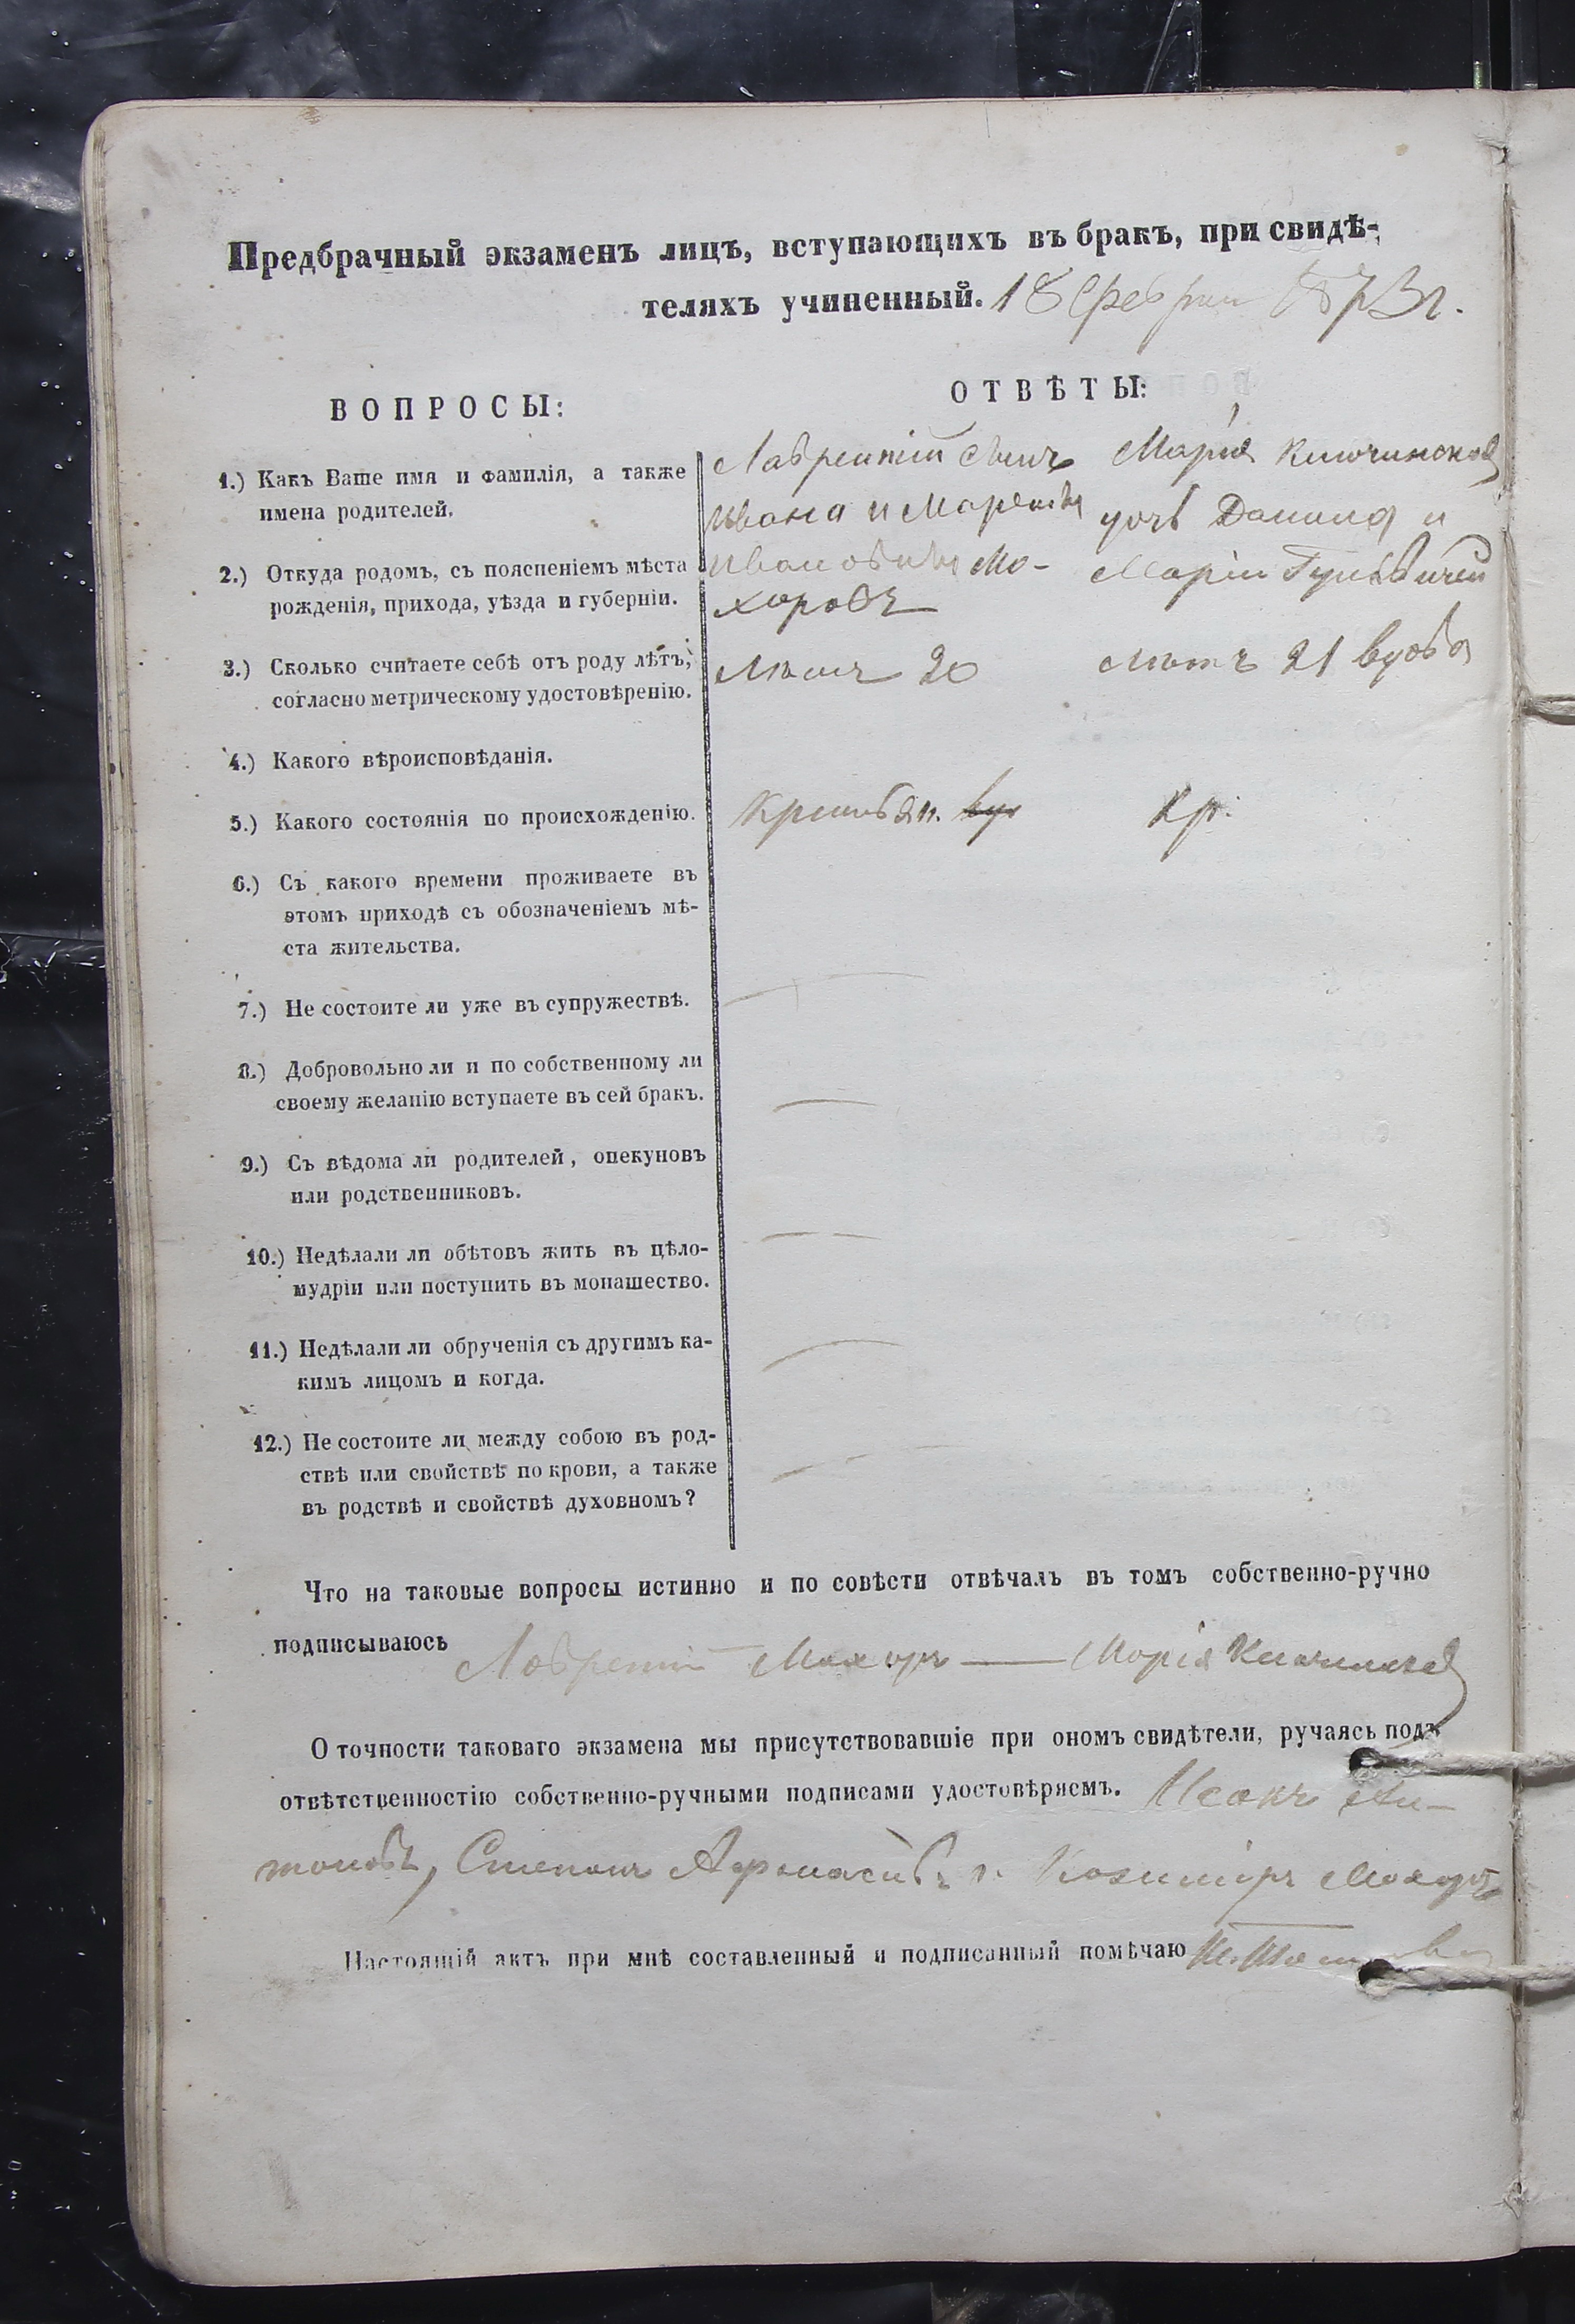 Предбрачный экзаменъ лицъ, вступающихъ въ бракъ, при свидѣ-
теляхъ учиненный. 18 1873 г.
ВОПРОСЫ:
ОТВѢТЫ:
1.) Какъ Ваше имя и фамилія, а также
имена родителей.
2.) Откуда родомъ, съ поясненіемъ мѣста
рожденія, прихода, уѣзда и губерніи.
3.) Сколько считаете себѣ отъ роду лѣтъ,
согласно метрическому удостовѣренію.
4.) Какого вѣроисповѣданія.
5.) Какого состоянія по происхожденію.
6.) Съ какого времени проживаете въ
этомъ приходѣ съ обозначеніемъ мѣ-
ста жительства.
7.) Не состоите ли уже въ супружествѣ.
8.) Добровольно ли и по собственному ли
своему желанію вступаете въ сей бракъ.
9.) Съ вѣдома ли родителей, опекуновъ
или родственниковъ.
10.) Недѣлали ли обѣтовъ жить въ цѣло-
мудріи или поступить въ монашество.
11.) Недѣлали ли обрученія съ другимъ ка-
кимъ лицомъ и когда.
12.) Не состоите ли между собою въ род-
ствѣ или свойствѣ по крови, а также
въ родствѣ и свойствѣ духовномъ?
Лаврентій сынъ
Ивана и
Мо-
ховъ
лѣтъ 20
Марія
дочь Данила и
Маріи
лѣтъ 21 вдова
Кр.
Что на таковые вопросы истинно и по совѣсти отвѣчалъ въ томъ собственно-ручно
подписываюсь Лаврентій Мохоръ — Марія
О точности таковаго экзамена мы присутствовавшіе при ономъ свидѣтели, ручаясь подъ
отвѣтственностію собственно-ручными подписами удостовѣряемъ. Исакъ Ан-
тоновъ, Степанъ Казиміръ Мохоръ
Настоящій актъ при мнѣ составленный и подписанный помѣчаю